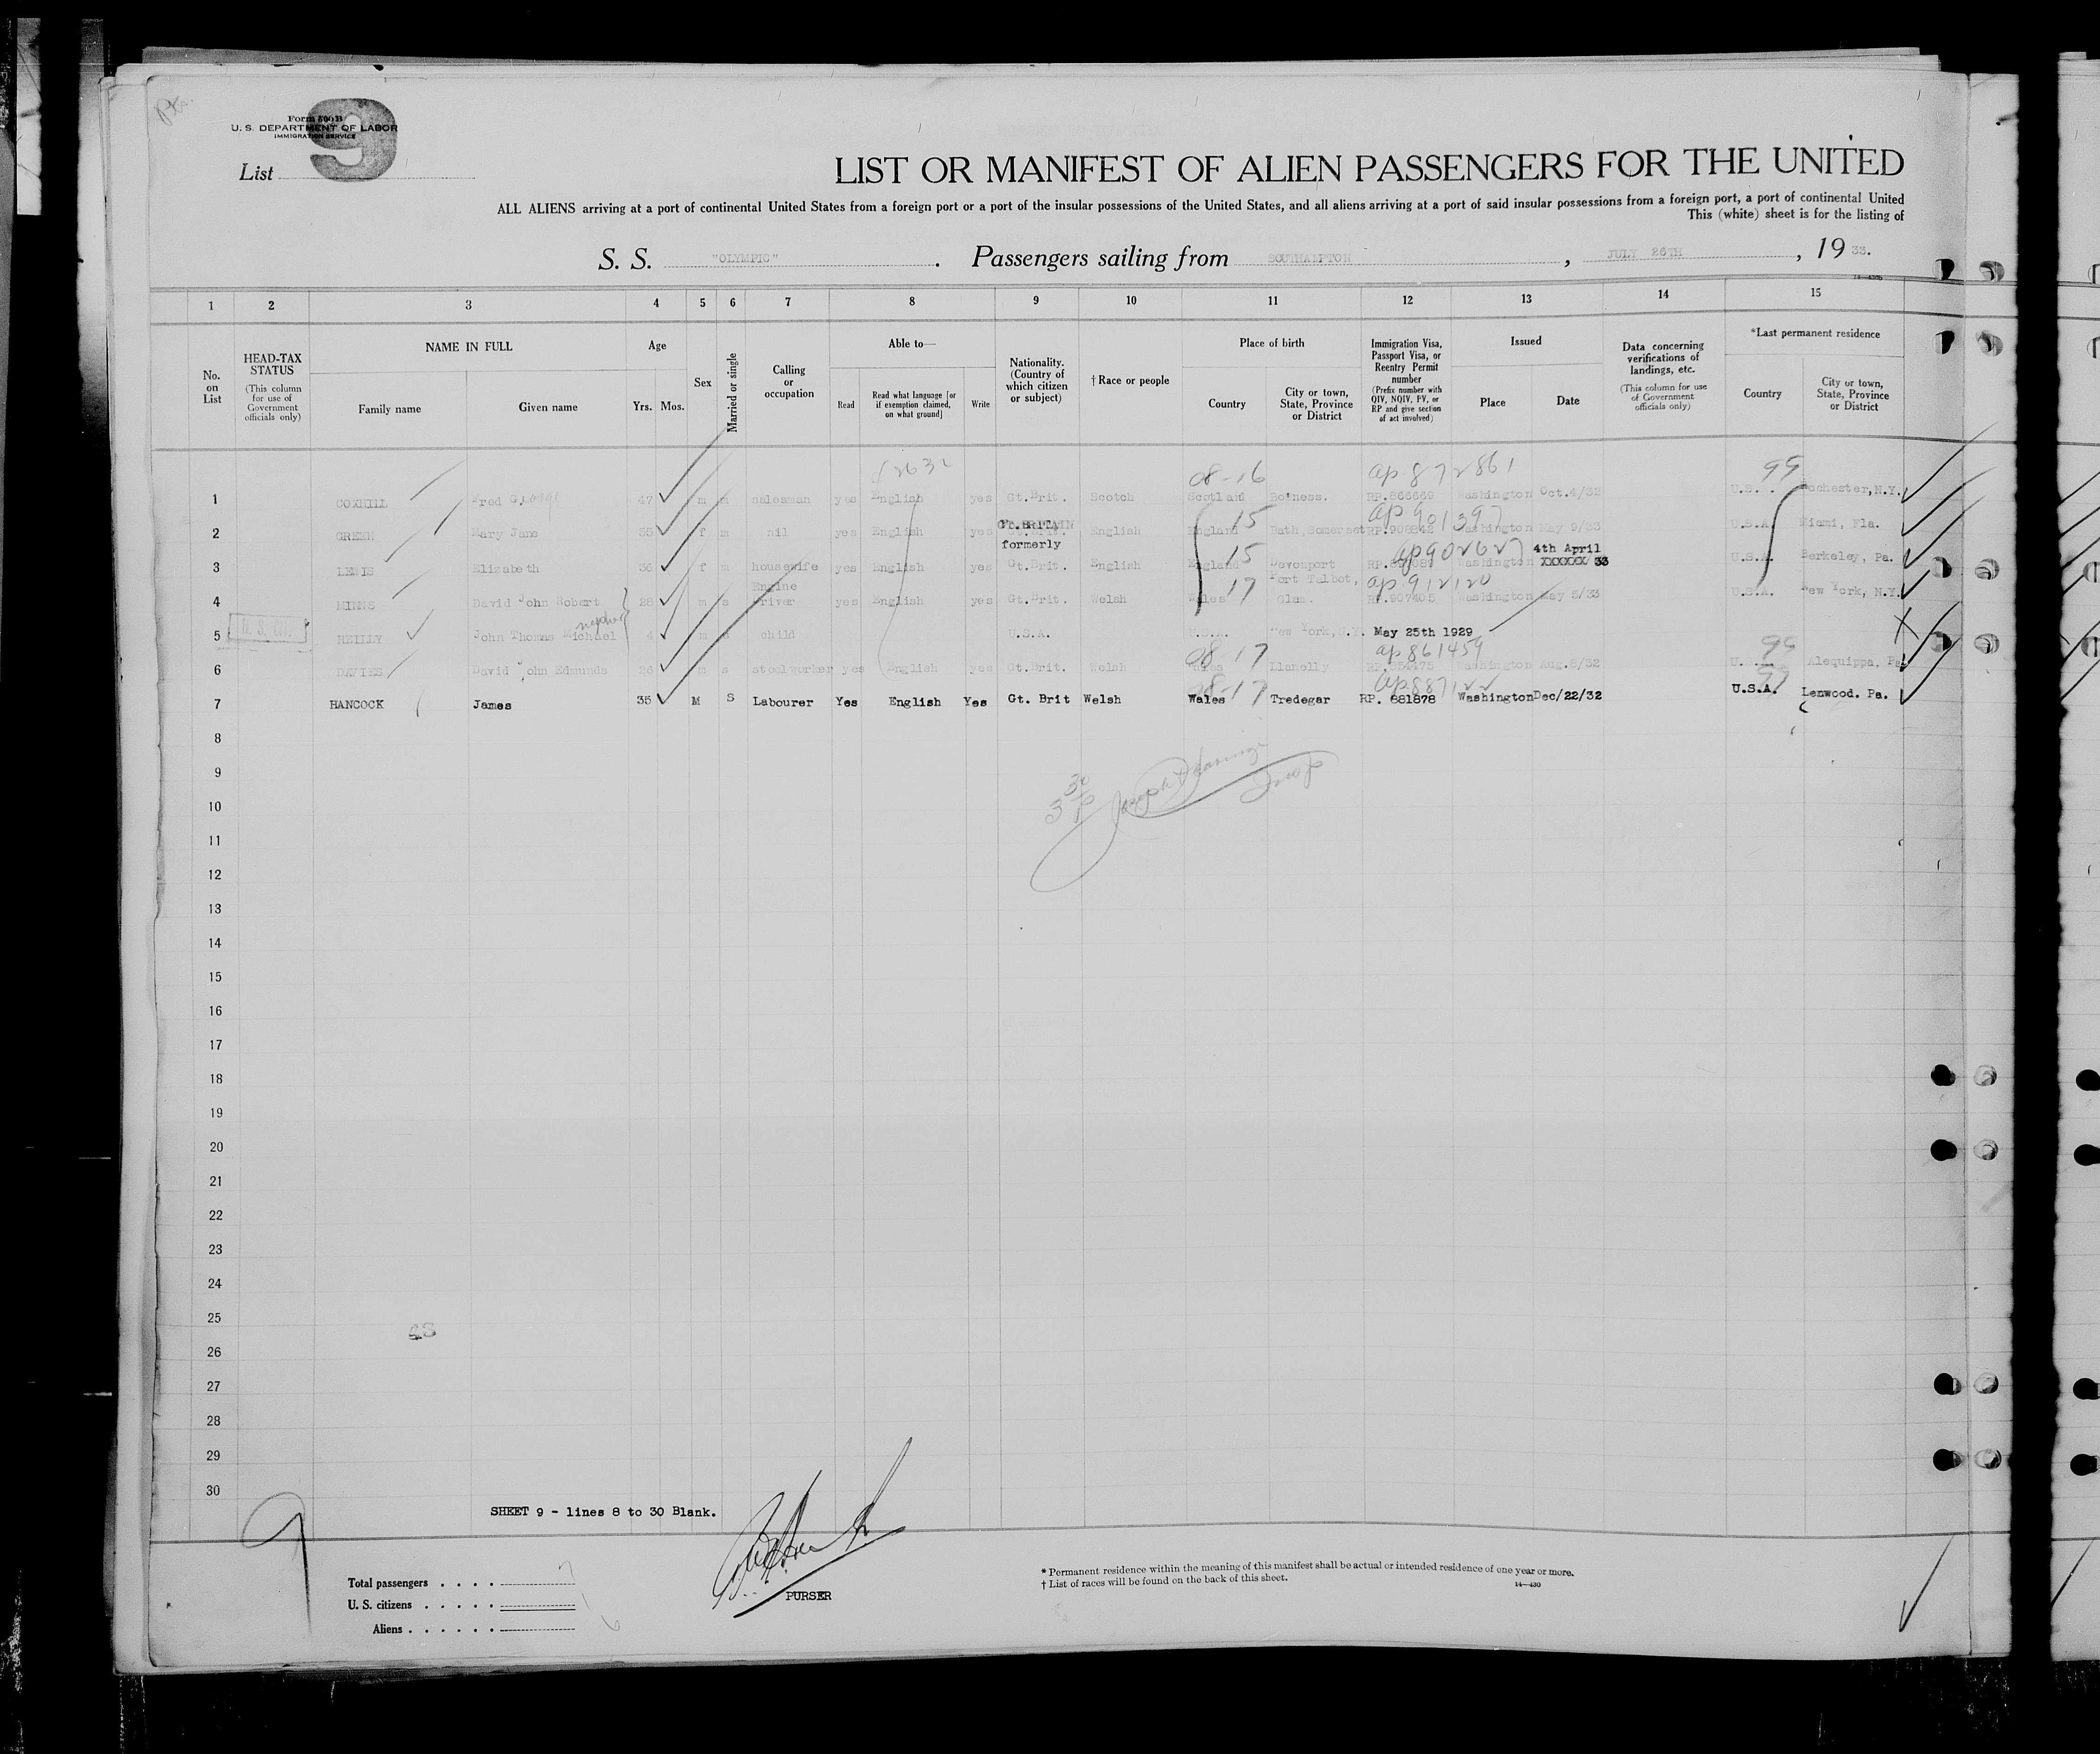 Form 500 B
U. S. DEPARTMENT OF LABOR
IMMIGRATION SERVICE
9
List
LIST OR MANIFEST OF ALIEN PASSENGERS FOR THE UNITED
ALL ALIENS arriving at a port of continental United States from a foreign port or a port of the insular possessions of the United States, and all aliens arriving at a port of said insular possessions from a foreign port, a port of continental United
This (white) sheet is for the listing of
S. S. "OLYMPIC". Passengers sailing from SOUTHAMPTON, JULY 26TH, 19 33.
14—430b
1 2 3 4 5 6 7 8 9 10 11 12 13 14 15
No. on List
HEAD-TAX STATUS (This column for use of Government officials only)
NAME IN FULL
Family name
Given name
Age
Yrs. Mos.
Sex
Married or single
Calling or occupation
Able to—
Read
Read what language [or if exemption claimed, on what ground]
Write
Nationality. (Country of which citizen or subject)
† Race or people
Place of birth
Country
City or town, State, Province or District
Immigration Visa, Passport Visa, or Reentry Permit number (Prefix number with QIV, NQIV, PV, or RP and give section of act involved)
Issued
Place
Date
Data concerning verifications of landings, etc. (This column for use of Government officials only)
*Last permanent residence
Country
City or town, State, Province or District
08-16 ap 872861 99
1 COXHILL Fred G. 47 m m salesman yes English yes Gt.Brit. Scotch Scotland Bo'ness. RP.866669 Washington Oct.4/32 U.S.A. Rochester, N.Y.
GT. BRITAIN 15 ap 901397
2 GREEN Mary Jane 55 f m nil yes English yes Gt.Brit. English England Bath, Somerset RP.908842 Washington May 9/33 U.S.A. Miami, Fla.
formerly 15 ap 902627 4th April
3 LEWIS Elizabeth 36 f m housewife yes English yes Gt.Brit. English England Devonport Washington XXXXXXX 33 U.S.A. Berkeley, Pa.
Engine 17 Port Talbot, ap 912120
4 MINNS David John Robert 28 m s Driver yes English yes Gt.Brit. Welsh Wales Glam. RP.907405 Washington May 5/33 U.S.A. New York, N.Y.
nephew
5 REILLY John Thomas Michael 4 m s child U.S.A. U.S.A. New York, N.Y. May 25th 1929
08-17 ap 861459 99
6 DAVIES David John Edmunds 26 m s steelworker yes English yes Gt.Brit. Welsh Wales Llanelly Washington Aug.2/32 U.S.A. Alequippa, Pa
08-17 ap 887122 99
7 HANCOCK James 35 M S Labourer Yes English Yes Gt. Brit Welsh Wales Tredegar RP. 881878 Washington Dec/22/32 U.S.A. Lenwood. Pa.
8
9
3 30 P
10
11
12
13
14
15
16
17
18
19
20
21
22
23
24
25
26
27
28
29
30
SHEET 9 - lines 8 to 30 Blank.
9
PURSER
Total passengers . . . . 7
U. S. citizens . . . . . 1
Aliens . . . . . . 6
* Permanent residence within the meaning of this manifest shall be actual or intended residence of one year or more.
† List of races will be found on the back of this sheet.
14—430